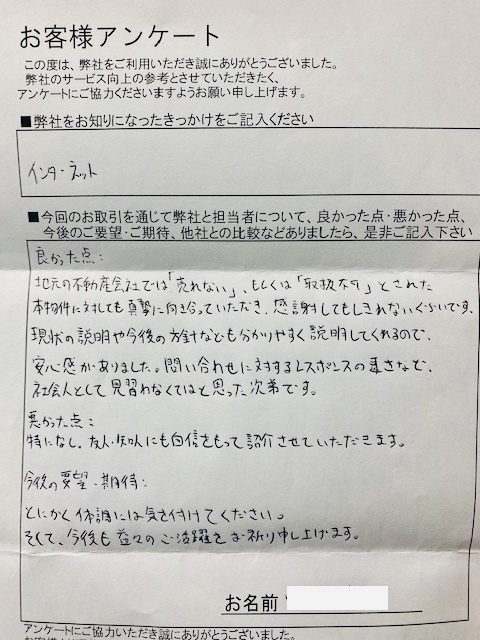 お客様アンケート
この度は、弊社をご利用いただき誠にありがとうございました。
弊社のサービス向上の参考とさせていただきたく、
アンケートにご協力くださいますようお願い申し上げます。
■弊社をお知りになったきっかけをご記入ください
インターネット
■今回のお取引を通じて弊社と担当者について、良かった点・悪かった点、
今後のご要望・ご期待、他社との比較などありましたら、是非ご記入下さい
良かった点：
地元の不動産会社では「売れない」、もしくは「取扱不可」とされた
本物件に対しても真摯に向き合っていただき、感謝してもしきれないぐらいです。
現状の説明や今後の方針なども分かりやすく説明してくれるので、
安心感がありました。問い合わせに対するレスポンスの早さなど、
社会人として見習わなくてはと思った次第です。
悪かった点：
特になし。友人・知人にも自信をもって紹介させていただきます。
今後の要望・期待：
とにかく体調には気を付けてください。
そして、今後も益々のご活躍をお祈り申し上げます。
お名前
アンケートにご協力いただき誠にありがとうございました。